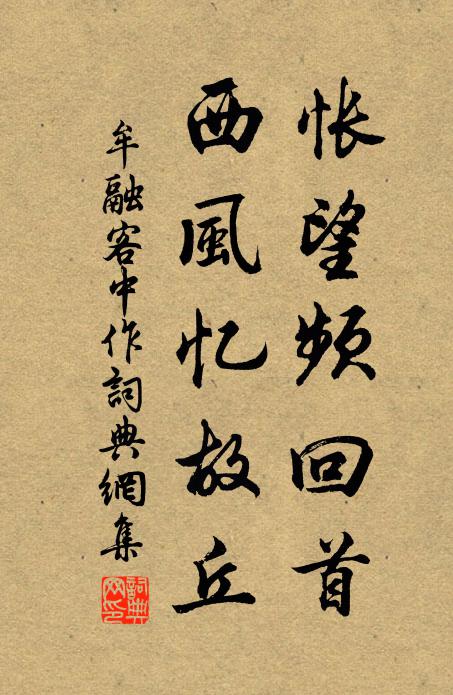 怅望频回首
西風忆故丘
牟融客中作詞典網集
詞典網印